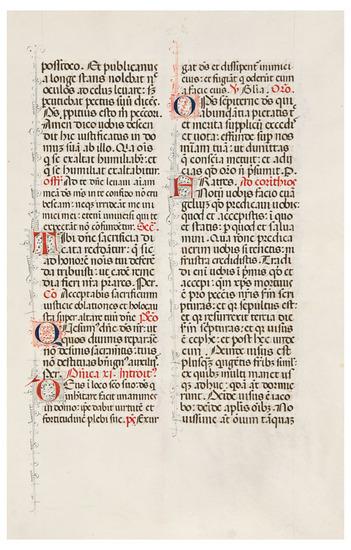 possideo. Et publicanus
a longe stans nolebat nec
oculos ad celum levare: sz
percutiebat pectus suum dicens.
Ds propitius esto mihi peccori.
Amen dico vobis descen
dit hic iustificatus in do
mum suam ab illo. Quia ois
qui se exaltat humiliabitur: et
qui se humiliat exaltabitur.
Ad te dne levavi aiam
mea ds ms in te confido non eru
bescam: neqz irrideat me ini
mici mei: eteni universi qui te
expectat no cofundetur. Secr.
Tibi dne sacrificia di
cata reddantur: que sic
ad honore nois tui defere
da tribuisti: ut eade reme
dia fieri nra prares. Per.
Co Acceptabis sacrificium
iusticie oblationes et holocau
sta super altare tuu dne. Pco
Quesum dne ds nr: ut
quos divinis reparare
non desinis sacramentis: tuis
non destituas benignus auxilijs.
Per. Dnica xi. introit
Deus i loco sco suo: ds qui
inhitare facit unanimes
in domo: ipe dabit virtute et
fortitudine plebi sue. ps Exur
gat ds et dissipent inimici
eius: et fugiat qui oderut eum
a facie eius. V Glia. Oro.
Ops sempiterne ds qui
abundatia pietatis tue
et merita supplicu excedis
et vota: effunde sup nos
miam tua: ut dimittas
que conscia metuit: et adij
cias quod oro no psumit. P.
Fratres. Ad corithios
Notu vobis facio evan
geliu quod predicavi vobis:
quod et accepistis: i quo
et statis: p quod et salva
mini. Qua rone predica
verim vobis si tenetis: nisi
frustra credidistis. Tradi
di eni vobis i primis quod et
accepi: qm xps mortuus
e pro peccatis nris scdm scri
pturas: et quia sepultus est:
et quia resurrexit tertia die
scdm scripturas: et quia visus
e cephe: et post hec undecim.
Deinde visus est
plusqz quigetis fribus siml:
ex quibus multi manet us
qz adhuc: quida aut dormie
runt. Deide visus e iaco
bo: deide aplis oibz. No
vissime aut oium tamquas